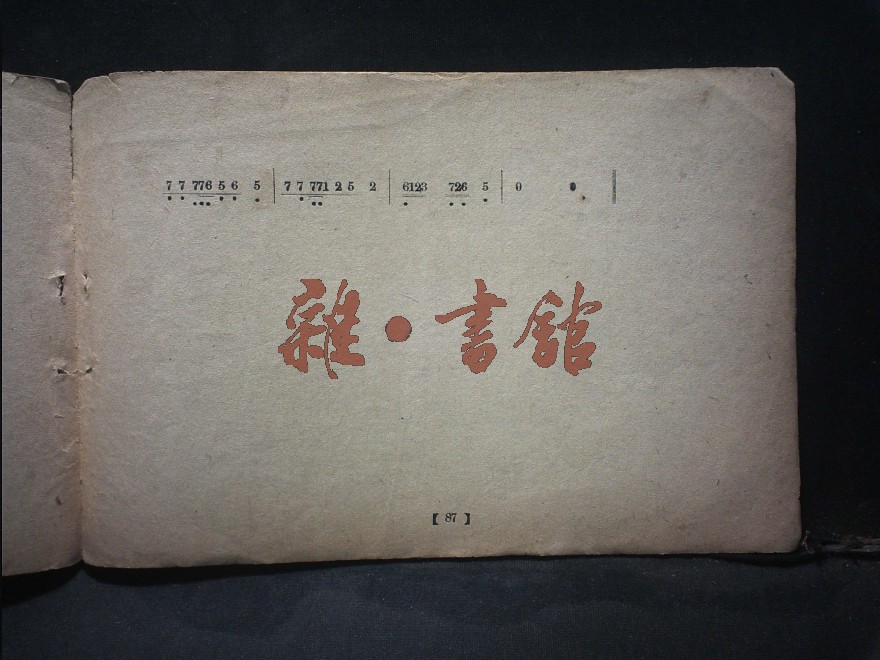 7 7 776 5 6 5 | 7 7 771 2 5 2 | 6123 726 5 | 0 0 ‖
雜•書館
【 87 】